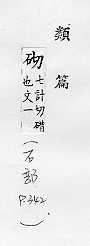 類篇
砌七計切磚
也文一
(石部
P.342
)